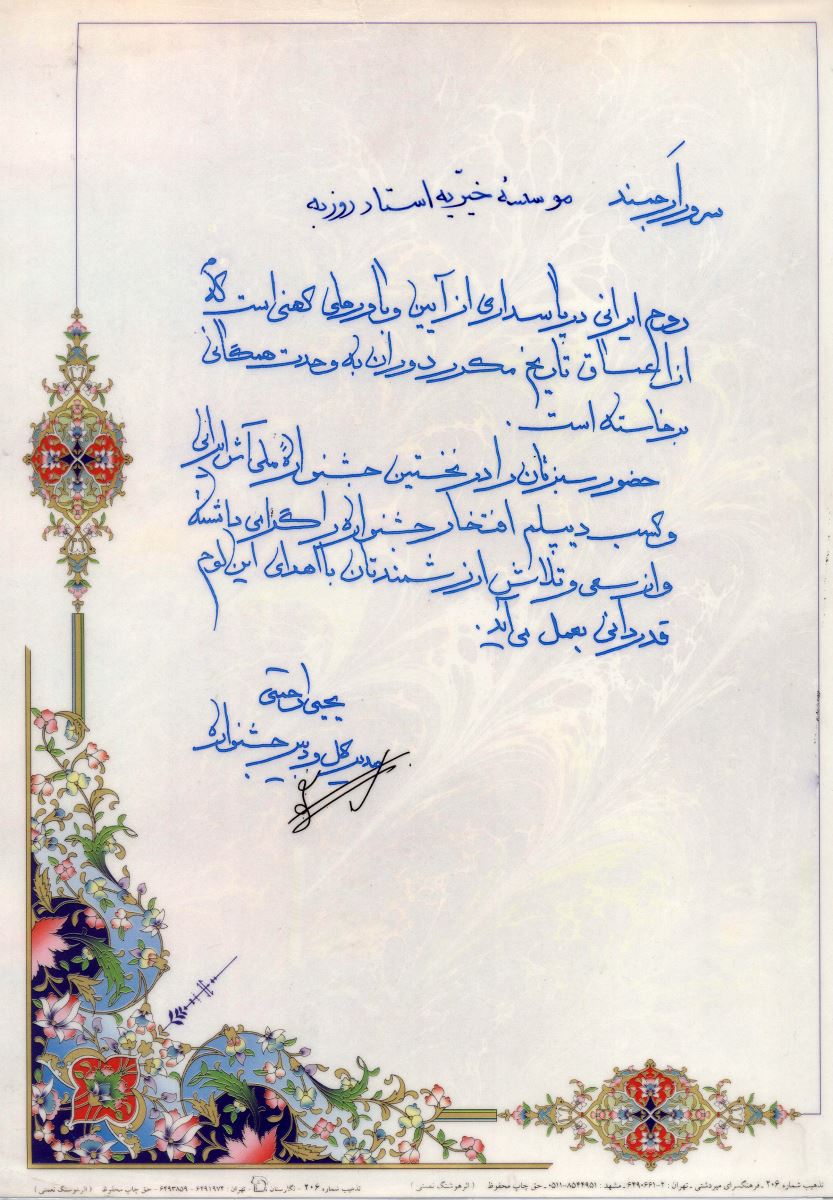 سرور ارجمند موسسهٔ خیّریه استاد روزبه
روح ایرانی در پاسداری از آیین و باورهای کهنی است که
از اعماق تاریخ مکرر دوران به وحدت همگانی
برخاسته است .
حضور سبزتان را در نخستین جشنوارهٔ ملی آش ایرانی
و کسب دیپلم افتخار جشنواره را گرامی داشته
و از سعی و تلاش ارزشمندتان با اهدای این لوح
قدردانی بعمل می‌آید .
یحیی
مدیر کل و دبیر جشنواره
تذهیب شماره ۲۰۶ - فرهنگسرای میردشتی - تهران : ۲-۶۴۹۰۶۶۱ - مشهد : ۸۵۴۴۹۵۱-۰۵۱۱ - حق چاپ محفوظ ( اثر هوشنگ نعمتی )
تذهیب شماره ۲۰۶ - نگارستان - تهران : ۶۴۹۱۹۷۴ - ۶۴۹۳۸۵۹ - حق چاپ محفوظ ( اثر هوشنگ نعمتی )